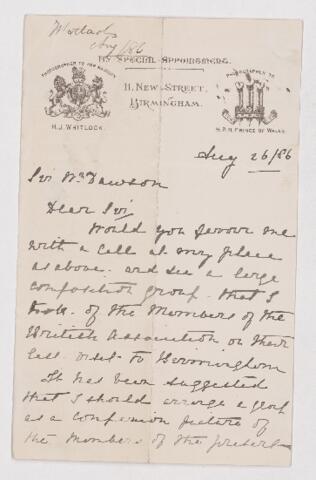 Whitlock
Aug/86
BY SPECIAL APPOINTMENT.
PHOTOGRAPHER TO HER MAJESTY
PHOTOGRAPHER TO
11, NEW STREET,
BIRMINGHAM.
H.J. WHITLOCK.
H.R.H. PRINCE OF WALES
Aug 26/86
Sir Wm Dawson
Dear Sir
Would you favour me
with a call at my place
as above. and see a large
composition group. that I
took. of the Members of the
British Association on their
last visit to Birmingham
It has been suggested
that I should arrange a group
as a companion picture of
the Members of the present